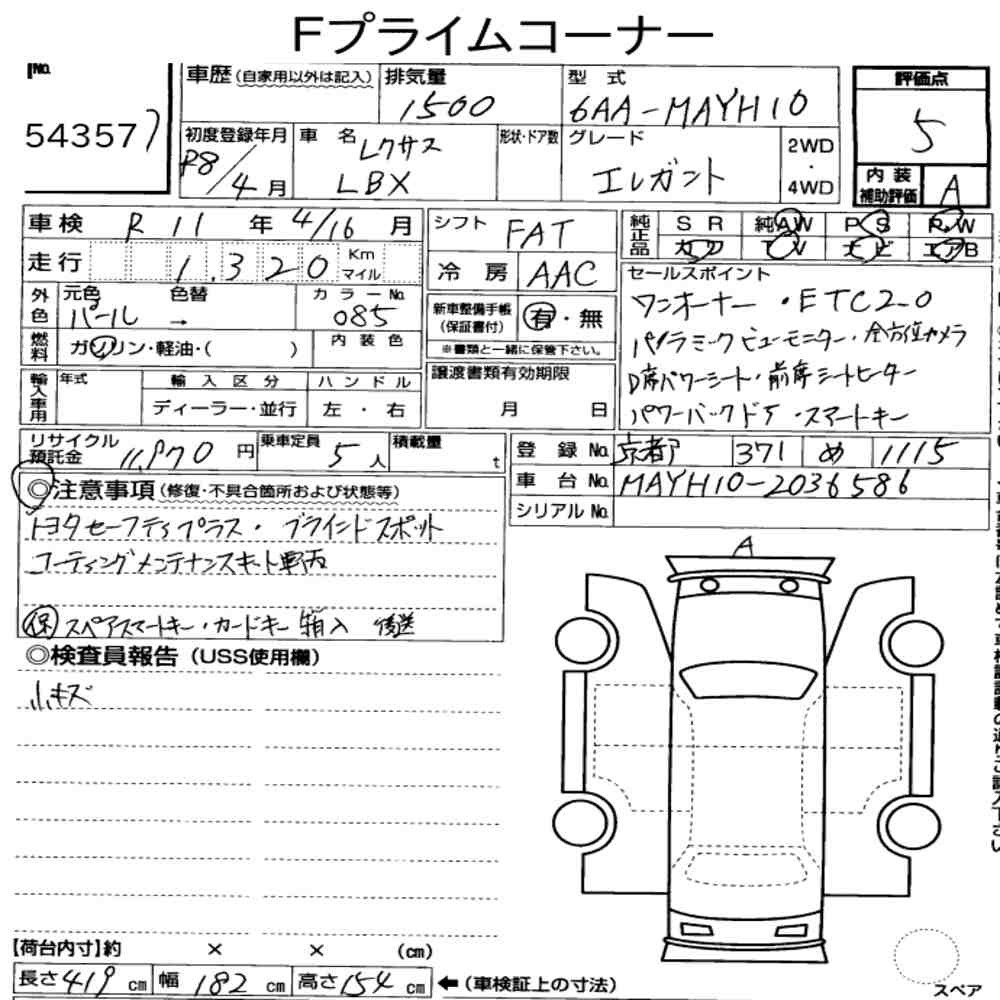 Fプライムコーナー
No.
54357
車歴（自家用以外は記入） 排気量 1500 型式 6AA-MAYH10 評価点 5
初度登録年月 R8/4月 車名 レクサス LBX 形状・ドア数 グレード エレガント 2WD・4WD 内装補助評価 A
車検 R 11 年 4/16 月 シフト FAT 純正品 SR 純AW PS R.W
カワ TV ナビ エアB
走行 1,320 Km マイル 冷房 AAC
外色 元色 パール → 色替 カラーNo. 085
燃料 ガソリン・軽油・（ ） 内装色
新車整備手帳（保証書付） 有・無
※書類と一緒に保管下さい。
セールスポイント
ワンオーナー ・ETC2.0
パノラミックビューモニター・全方位カメラ
D席パワーシート・前席シートヒーター
パワーバックドア・スマートキー
輸入車用 年式 輸入区分 ハンドル
ディーラー・並行 左・右
譲渡書類有効期限
月 日
リサイクル預託金 11,970 円 乗車定員 5人 積載量 t
登録No. 京都 371 め 1115
車台No. MAYH10-2036586
シリアルNo.
◎注意事項（修復・不具合箇所および状態等）
トヨタセーフティプラス・ブラインドスポット
コーティングメンテナンスキット車内
保 スペアスマートキー・カードキー 箱入 後送
◎検査員報告（USS使用欄）
小キズ
A
【荷台内寸】約 × × （cm）
長さ 419 cm 幅 182 cm 高さ 154 cm ←（車検証上の寸法）
スペア